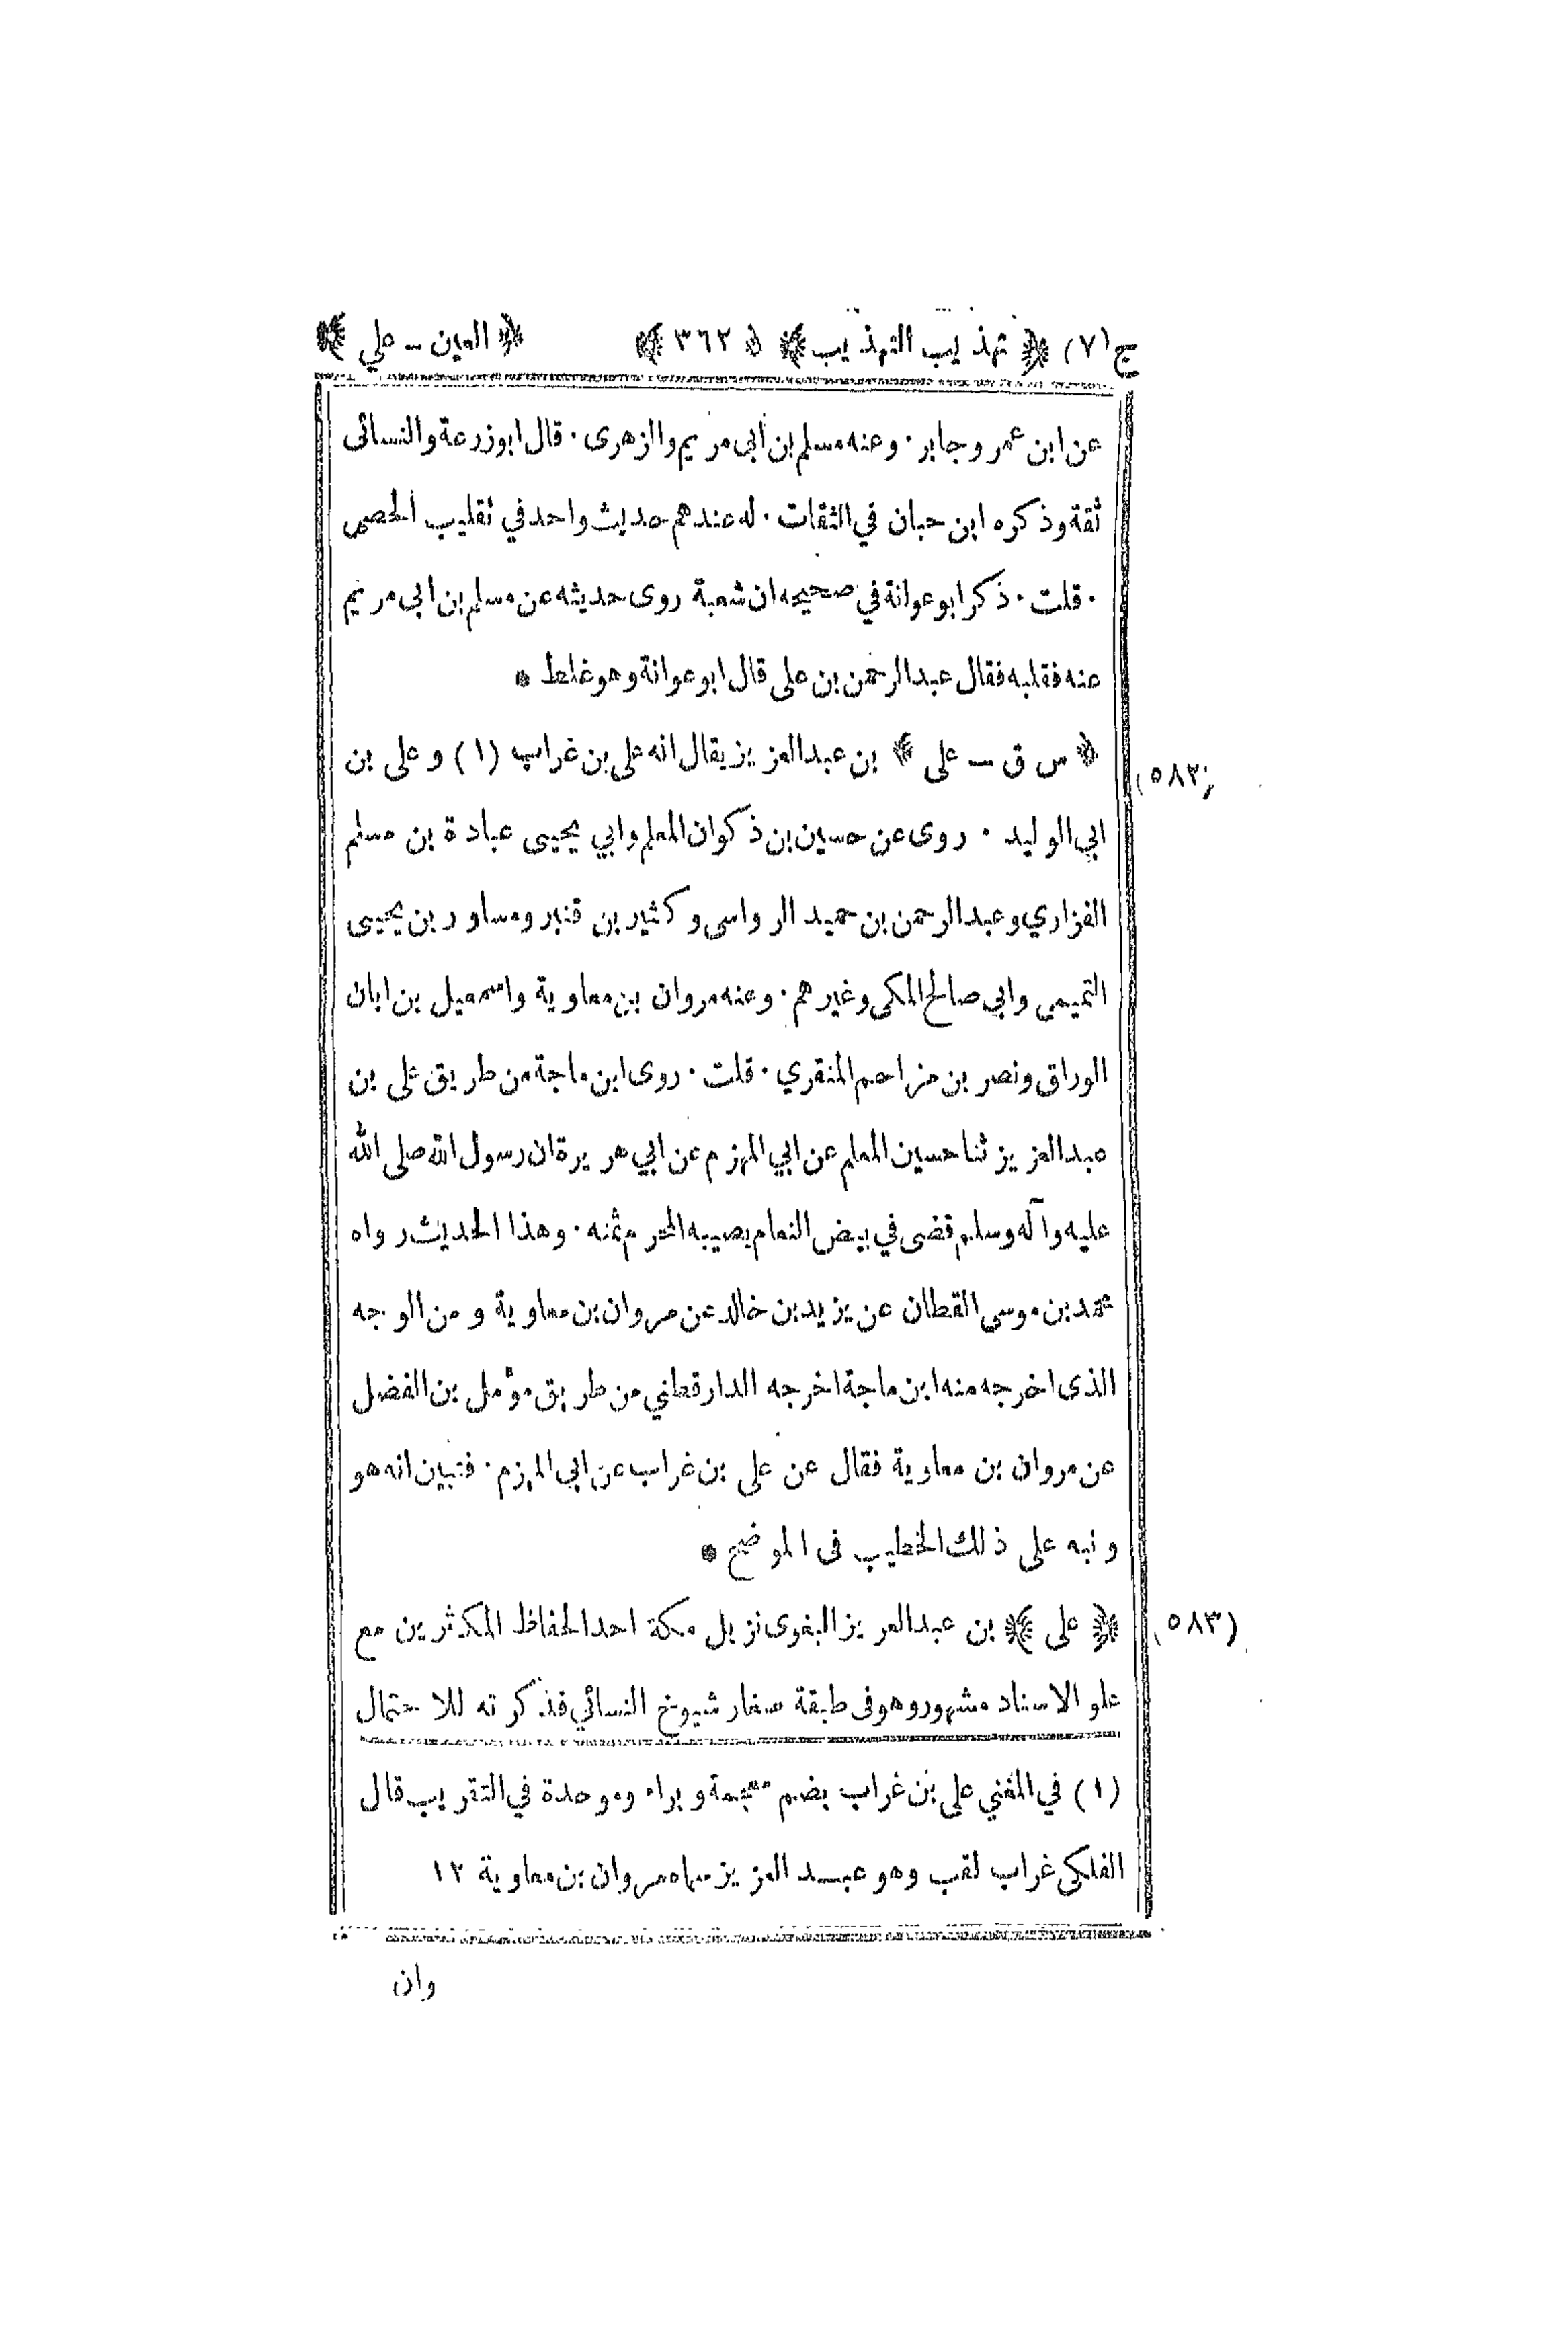 ج(٧) ﴿ تهذيب التهذيب ﴾ ﴿ ٣٦٢ ﴾ ﴿ العين – علي ﴾
عن ابن عمر وجابر . وعنه مسلم بن أبي مريم والزهرى . قال ابوزرعة والنسائى
ثقة وذكره ابن حبان في الثقات . له عندهم حديث واحد في تقليب الحصى
. قلت . ذكر ابوعوانة في صحيحه ان شعبة روى حديثه عن مسلم بن ابي مريم
عنه فقلبه فقال عبد الرحمن بن على قال ابوعوانة وهو غلط *
(٥٨٢) ﴿ س ق – على ﴾ بن عبد العزيز يقال انه على بن غراب (١) و على بن
ابي الوليد . روى عن حسين بن ذكوان المعلم وابي يحيى عبادة بن مسلم
الفزاري وعبد الرحمن بن حميد الرواسى وكثير بن قنبر ومساور بن يحيى
التميمي وابي صالح المكى وغيرهم . وعنه مروان بن معاوية واسمعيل بن ابان
الوراق ونصر بن مزاحم المنقري . قلت . روى ابن ماجة من طريق على بن
عبد العزيز ثنا حسين المعلم عن ابي المهزم عن ابي هريرة ان رسول الله صلى الله
عليه وآله وسلم قضى في بيض النعام يصيبه المحرم ثمنه . وهذا الحديث رواه
محمد بن موسى القطان عن يزيد بن خالد عن مروان بن معاوية ومن الوجه
الذى اخرجه منه ابن ماجة اخرجه الدارقطني من طريق مؤمل بن الفضل
عن مروان بن معاوية فقال عن على بن غراب عن ابي المهزم . فتبين انه هو
ونبه على ذلك الخطيب فى الموضح *
(٥٨٣) ﴿ على ﴾ بن عبد العزيز البغوى نزيل مكة احد الحفاظ المكثرين مع
علو الاسناد مشهور وهو فى طبقة صغار شيوخ النسائي فذكرته للاحتمال
(١) في المغني على بن غراب بضم معجمة وبراء وموحدة في التقريب قال
الفلكى غراب لقب وهو عبد العزيز سماه مروان بن معاوية ١٢
وان